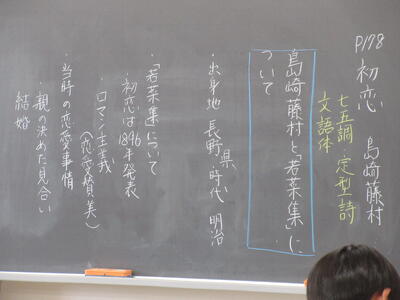 P178 初恋 島崎藤村
七五調・定型詩
文語体
島崎藤村と「若菜集」に
ついて
・出身地 長野県 時代 明治
・「若菜集」について
・初恋は1896年発表
・ロマン主義
(恋愛賛美)
・当時の恋愛事情
・親の決めた見合い
結婚